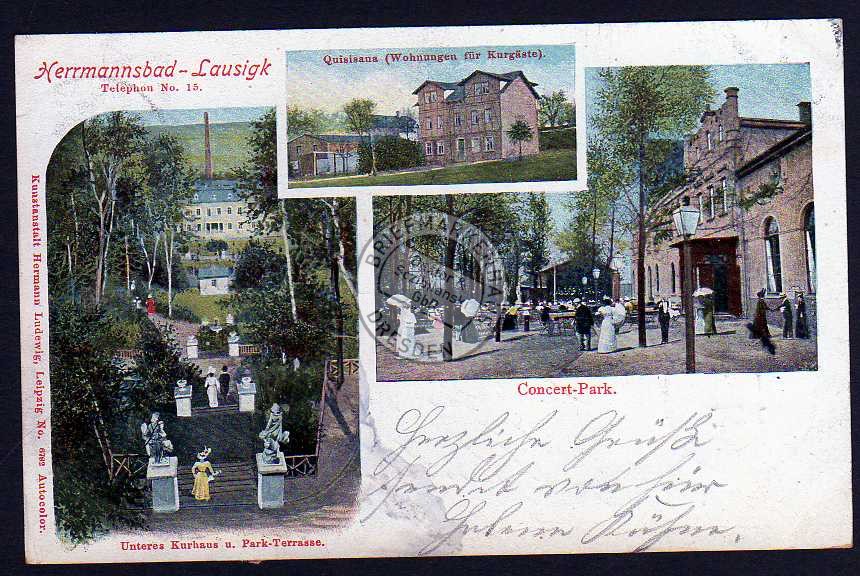 Herrmannsbad-Lausigk
Telephon No. 15.
Quisisana (Wohnungen für Kurgäste).
Concert-Park.
Unteres Kurhaus u. Park-Terrasse.
Kunstanstalt Hermann Ludewig, Leipzig No. 6782 Autocolor.
Herzliche Grüße
sendet von hier
BRIEFMARKENHAUS
DRESDEN